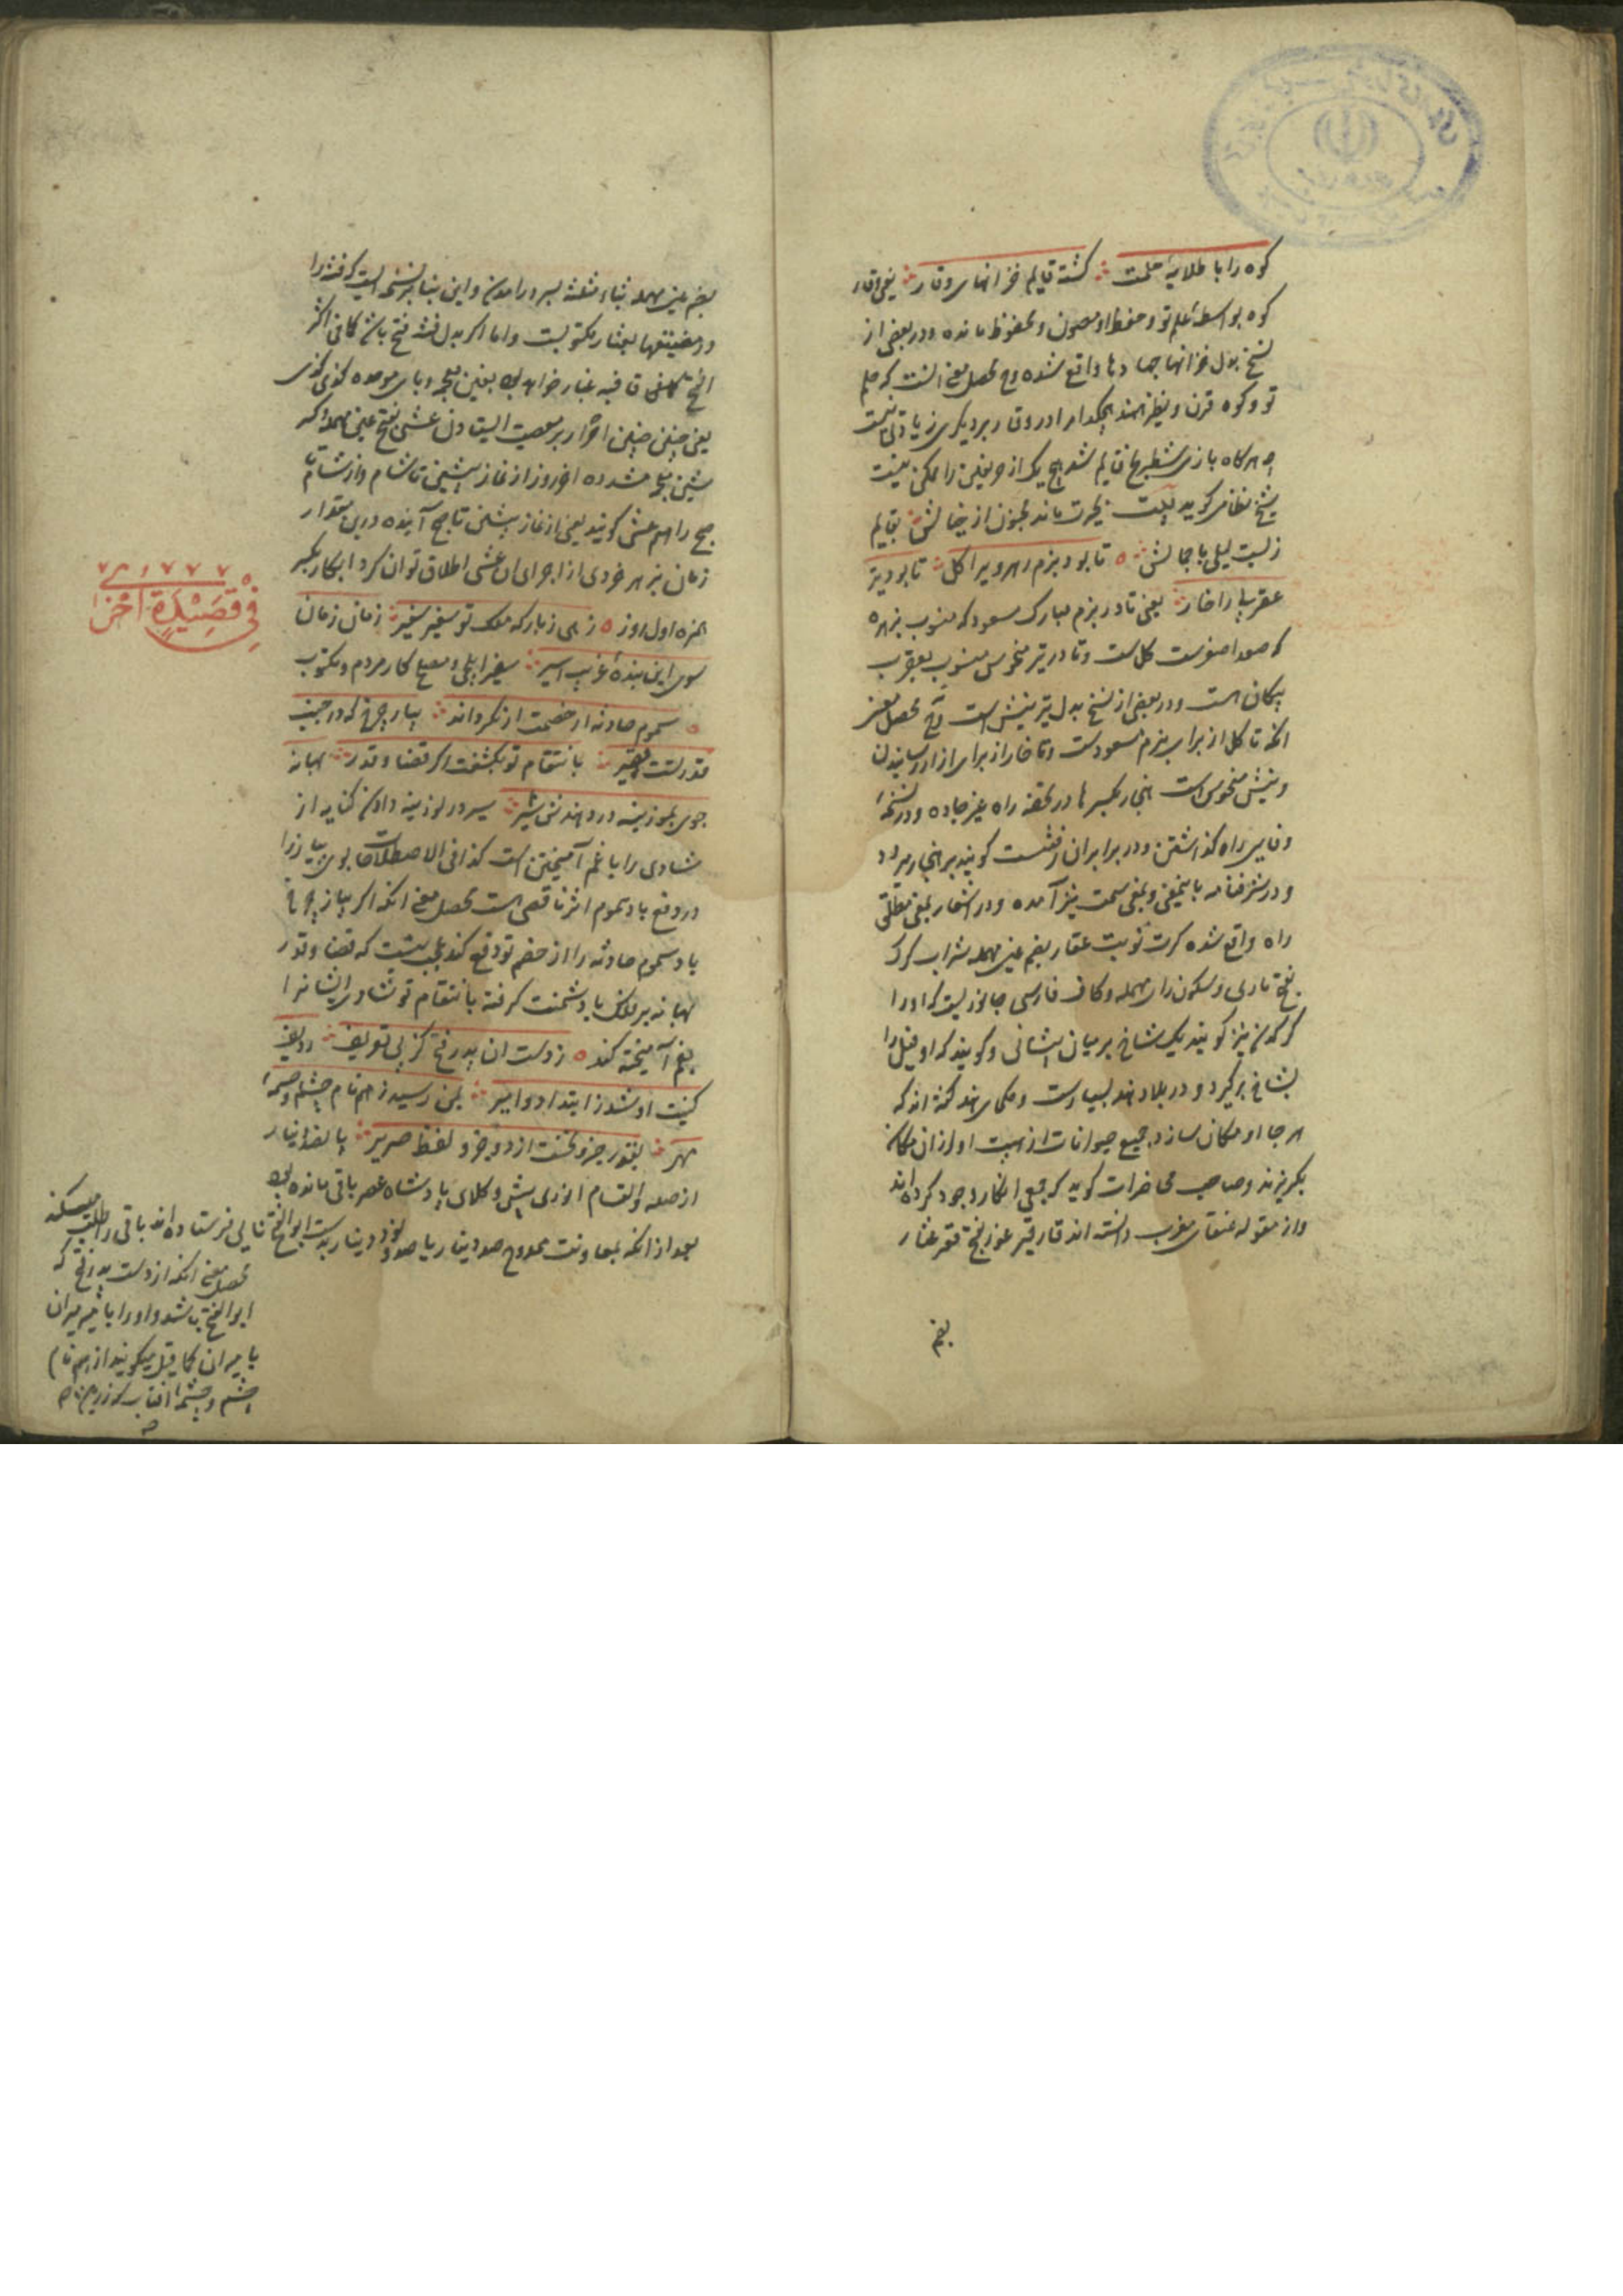 کوه را با طلایهٔ حلمت گشته قایم خزانهای وقار یعنی وقار
کوه بواسطهٔ حلم تو و حفظ او مصون و محفوظ مانده و در بعضی از
نسخ بدل خزانها جهادها واقع شده و ح محصل معنی آنست که حلم
تو و کوه قرن و نظیر همند هیچکدام را در وقار بر دیگری زیادتی نیست
و هرگاه بازی شطرنج قایم شد هیچ یک از حریفین را ممکن نیست
شیخ نظامی گوید بیت بحیرت ماند مجنون از خیالش بقایم
زیست لیلی با جمالش تا بود بزم زهره را گل تا بود تیر
عقرب را خار یعنی تا در بزم مبارک مسعود که منسوب بزهره
که صد اصغرست گل است و تا در تیر منحوس منسوب بعقرب
پیکان است و در بعضی از نسخ بدل تیر نیش است و ح محصل معنی
آنکه تا گل از برای بزم مسعودست و تا خار از برای آزار رسانیدن
و نیش منحوس است هنجار بکسر ها در تحفه راه غیر جاده و در نسخهٔ
وفایی راه گذاشتن و در برابر آن رفتنست گویند بر هنجار میرود
و در شرفنامه باینمعنی و بمعنی سمت نیز آمده و در اشعار بمعنی مطلق
راه واقع شده کرت نوبت عقار بضم عین مهمله شراب کرگ
بفتح تازی و سکون رای مهمله و کاف فارسی جانوریست که او را
کرگدن نیز گویند یک شاخ بر میان پیشانی و گویند که او فیل را
بشاخ برگیرد و در بلاد هند بسیارست و حکمای هند گفته اند که
هر جا او مکان سازد جمیع حیوانات از هیبت او از آن مکان
بگریزند و صاحب محاضرات گوید که جمعی انکار وجود کرده اند
و از مقوله عنقای مغرب دانسته اند قار قیر غور بفتح قعر عثار
بضم
بضم عین مهمله بثاء مثلثه بسر در آمدن و این بنا بر نسخه ایست که فتنه را
در مضیقها عثار مکتوبست و اما اگر بدل فتنه فتح باشد کما فی اکثر
النسخ قافیه غبار خواهد بود بغین معجمه و بای موحده
یعنی چنین چنین اقرار بر معصیت عشی بفتح عین مهمله و کسر
شین معجمه مشدده آخر روز از نماز پیشین تا شام و از شام تا
صبح را هم عشی گویند یعنی از نماز پیشین تا صبح آینده درین مقدار
زمان بر هر جزوی از اجزای آن عشی اطلاق توان کرد ابکار بکسر
همزه اول روز زهی زبارگه ملک تو سفیر سفیر زمان زمان
سوی این بندهٔ غریب اسیر سفیر ایلچی و مصلح کار مردم و مکتوب
سموم حادثه از خصمت ار نگرداند پیاز چرخ که در جنب
قدر تست حقیر بانتقام تو نگشفت اگر قضا و قدر بهانه
جوی بلوزینه در دهندش سیر سیر در لوزینه دادن کنایه از
شادی را با غم آمیختن است کذا فی الاصطلاحات بوی پیاز را
در دفع باد سموم اثر ناقصی است محصل معنی آنکه اگر پیاز چرخ
باد سموم حادثه را از خصم تو دفع کند عجب نیست که قضا و قدر
بهانه بر فلک یا دشمنت گرفته بانتقام تو شادی ایشانرا
بغم آمیخته کند ز دست آن پدر فتح کز پی تعریف ردیف
کنیت او شد ز ابتدا دو امیر بمن رسید ز هم نام چشم و چشمهٔ
مهر بقدر جزو نخست از دو جزو لفظ صریر
از صله و انعام انوری پیش وکلای پادشاه عصر باقی مانده بود
بعد از آنکه بمعاونت ممدوح صد دینار یا صد و نود دینار بدست ابوالفتح نامی فرستاده اند باقی را طلب میکند
محصل معنی آنکه از دست پدر فتح که
ابوالفتح باشد و او را با میر میران
یا میر آن کما قیل میگویند از هم نام
چشم و چشمهٔ آفتاب که زر
فی قصیدة اخرا